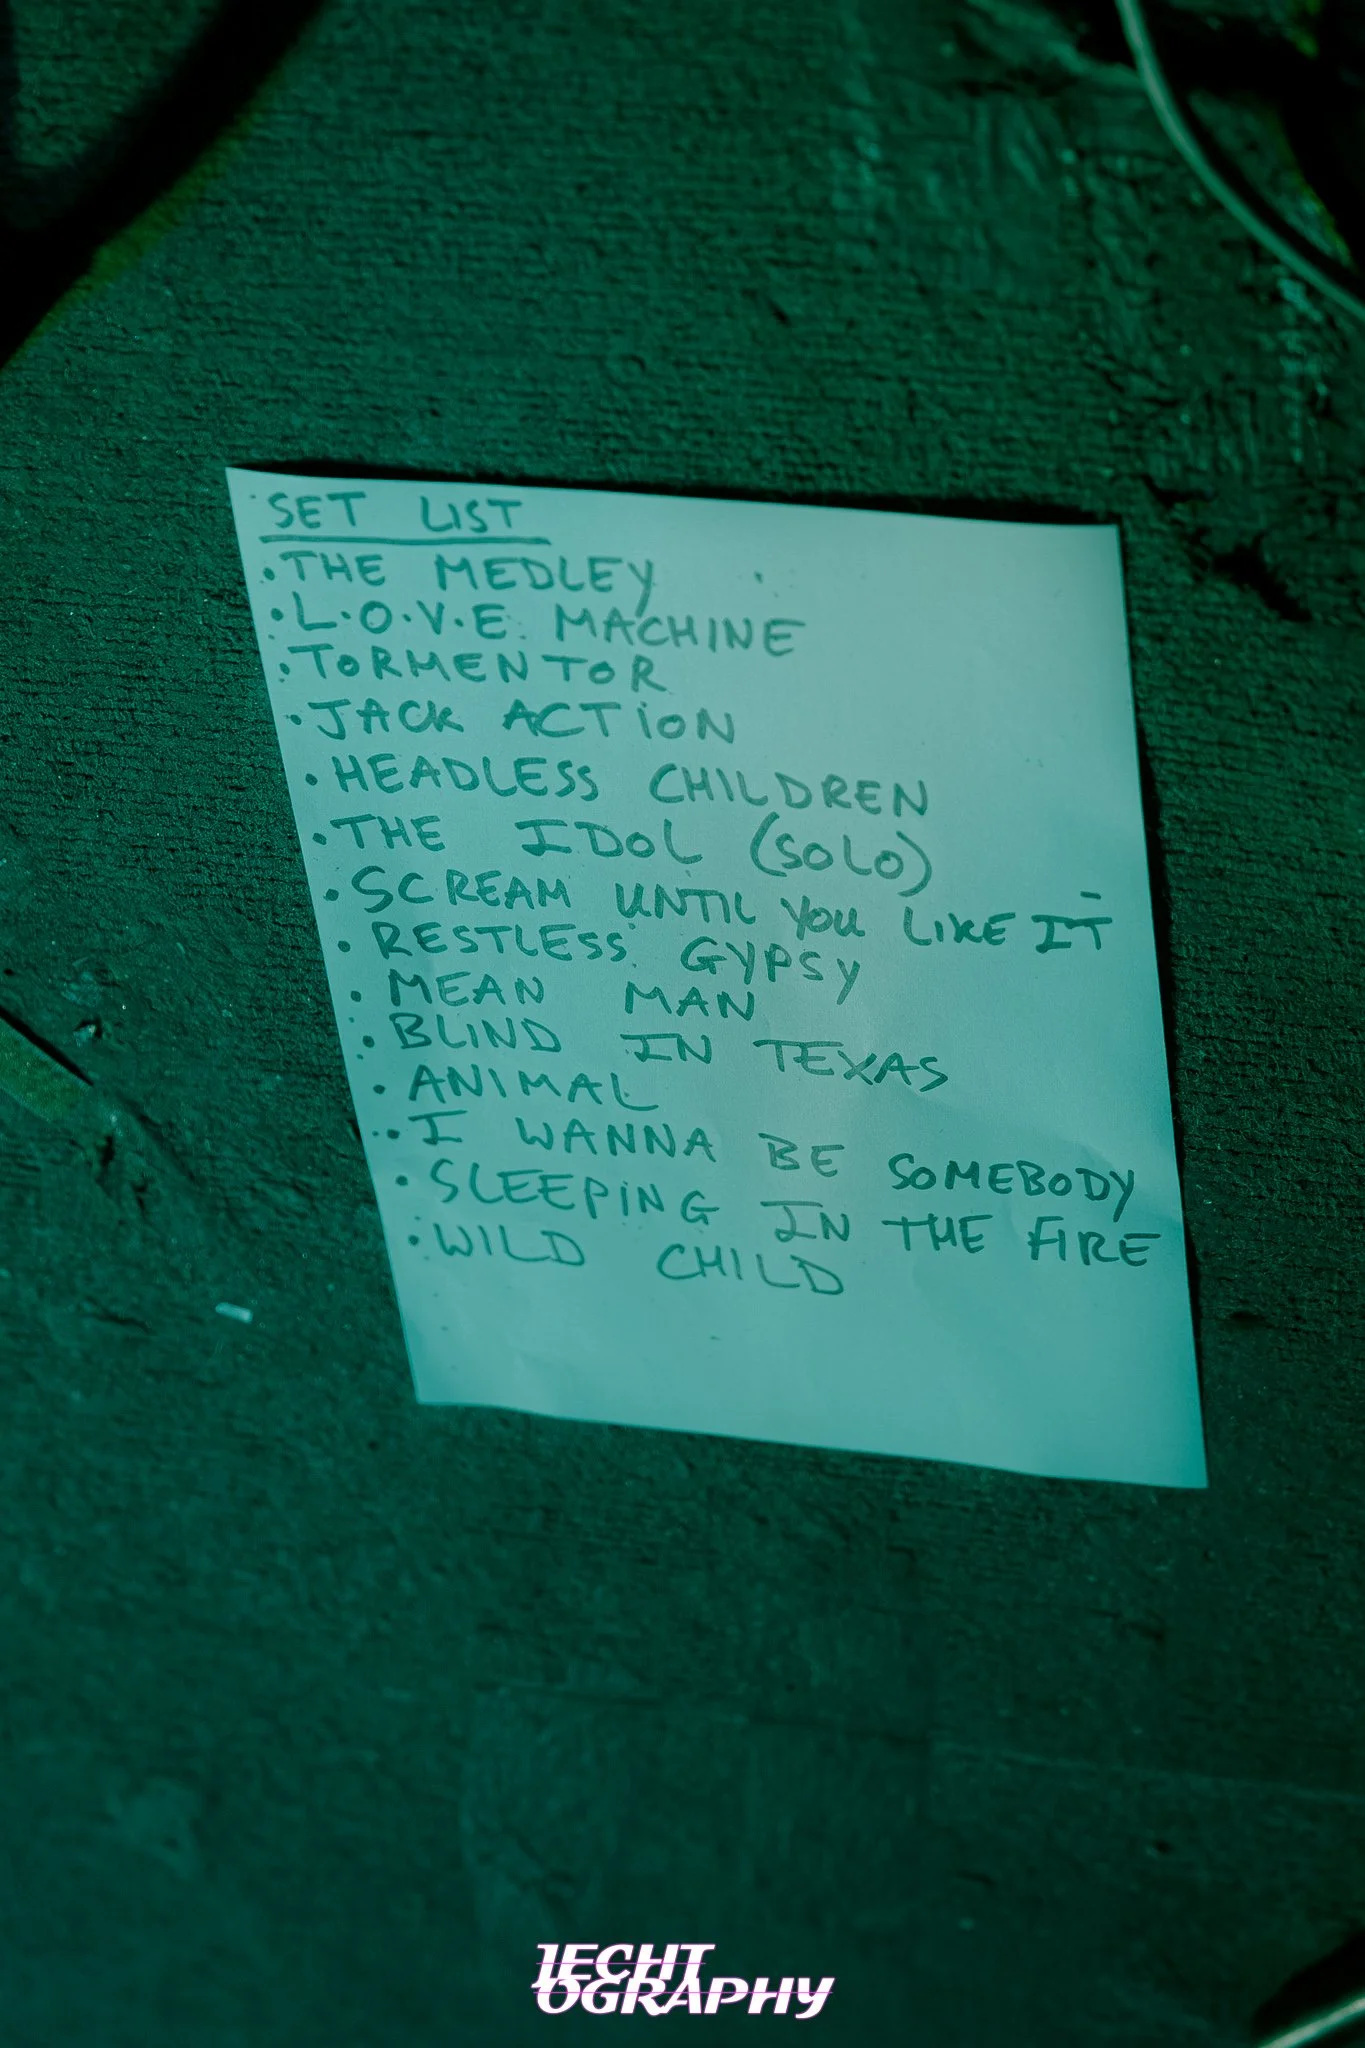 SET LIST
• THE MEDLEY
• L.O.V.E. MACHINE
• TORMENTOR
• JACK ACTION
• HEADLESS CHILDREN
• THE IDOL (SOLO)
• SCREAM UNTIL YOU LIKE IT
• RESTLESS GYPSY
• MEAN MAN
• BLIND IN TEXAS
• ANIMAL
• I WANNA BE SOMEBODY
• SLEEPING IN THE FIRE
• WILD CHILD
1ECHT
OGRAPHY